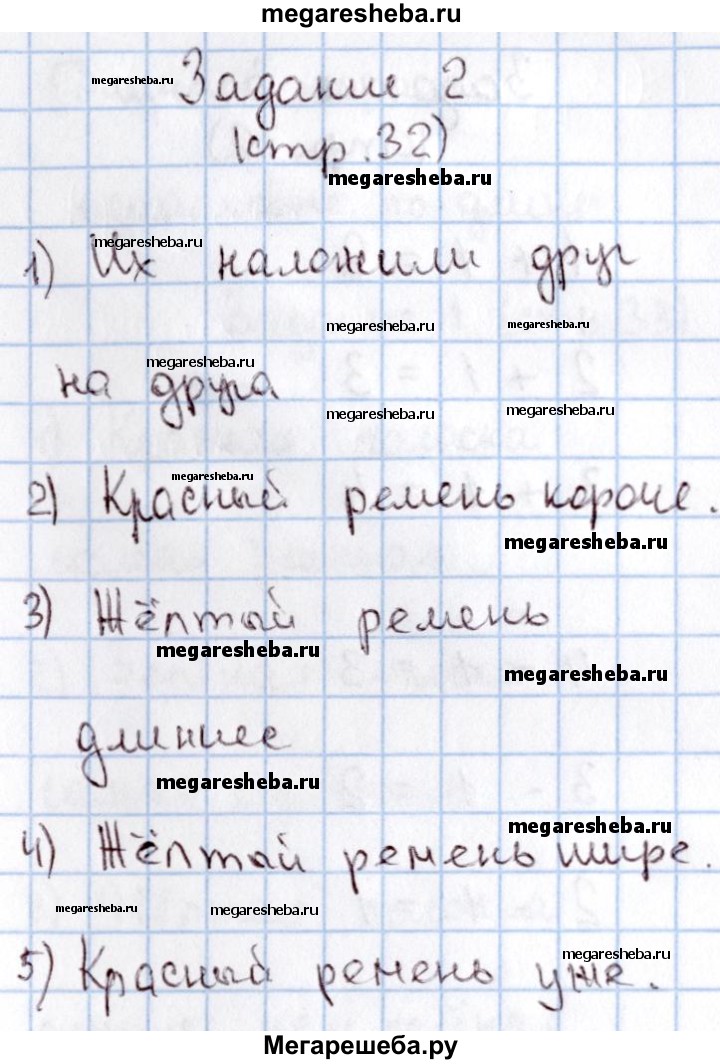 megaresheba.ru
megaresheba.ru
Задание 2
(стр.32)
megaresheba.ru
megaresheba.ru
1) Их наложили друг
megaresheba.ru megaresheba.ru
megaresheba.ru
на друга
megaresheba.ru megaresheba.ru
megaresheba.ru
2) Красный ремень короче.
megaresheba.ru
3) Жёлтый ремень
megaresheba.ru
megaresheba.ru
длиннее
megaresheba.ru
megaresheba.ru
4) Жёлтый ремень шире.
megaresheba.ru megaresheba.ru
megaresheba.ru
5) Красный ремень уже.
Мегарешеба.ру